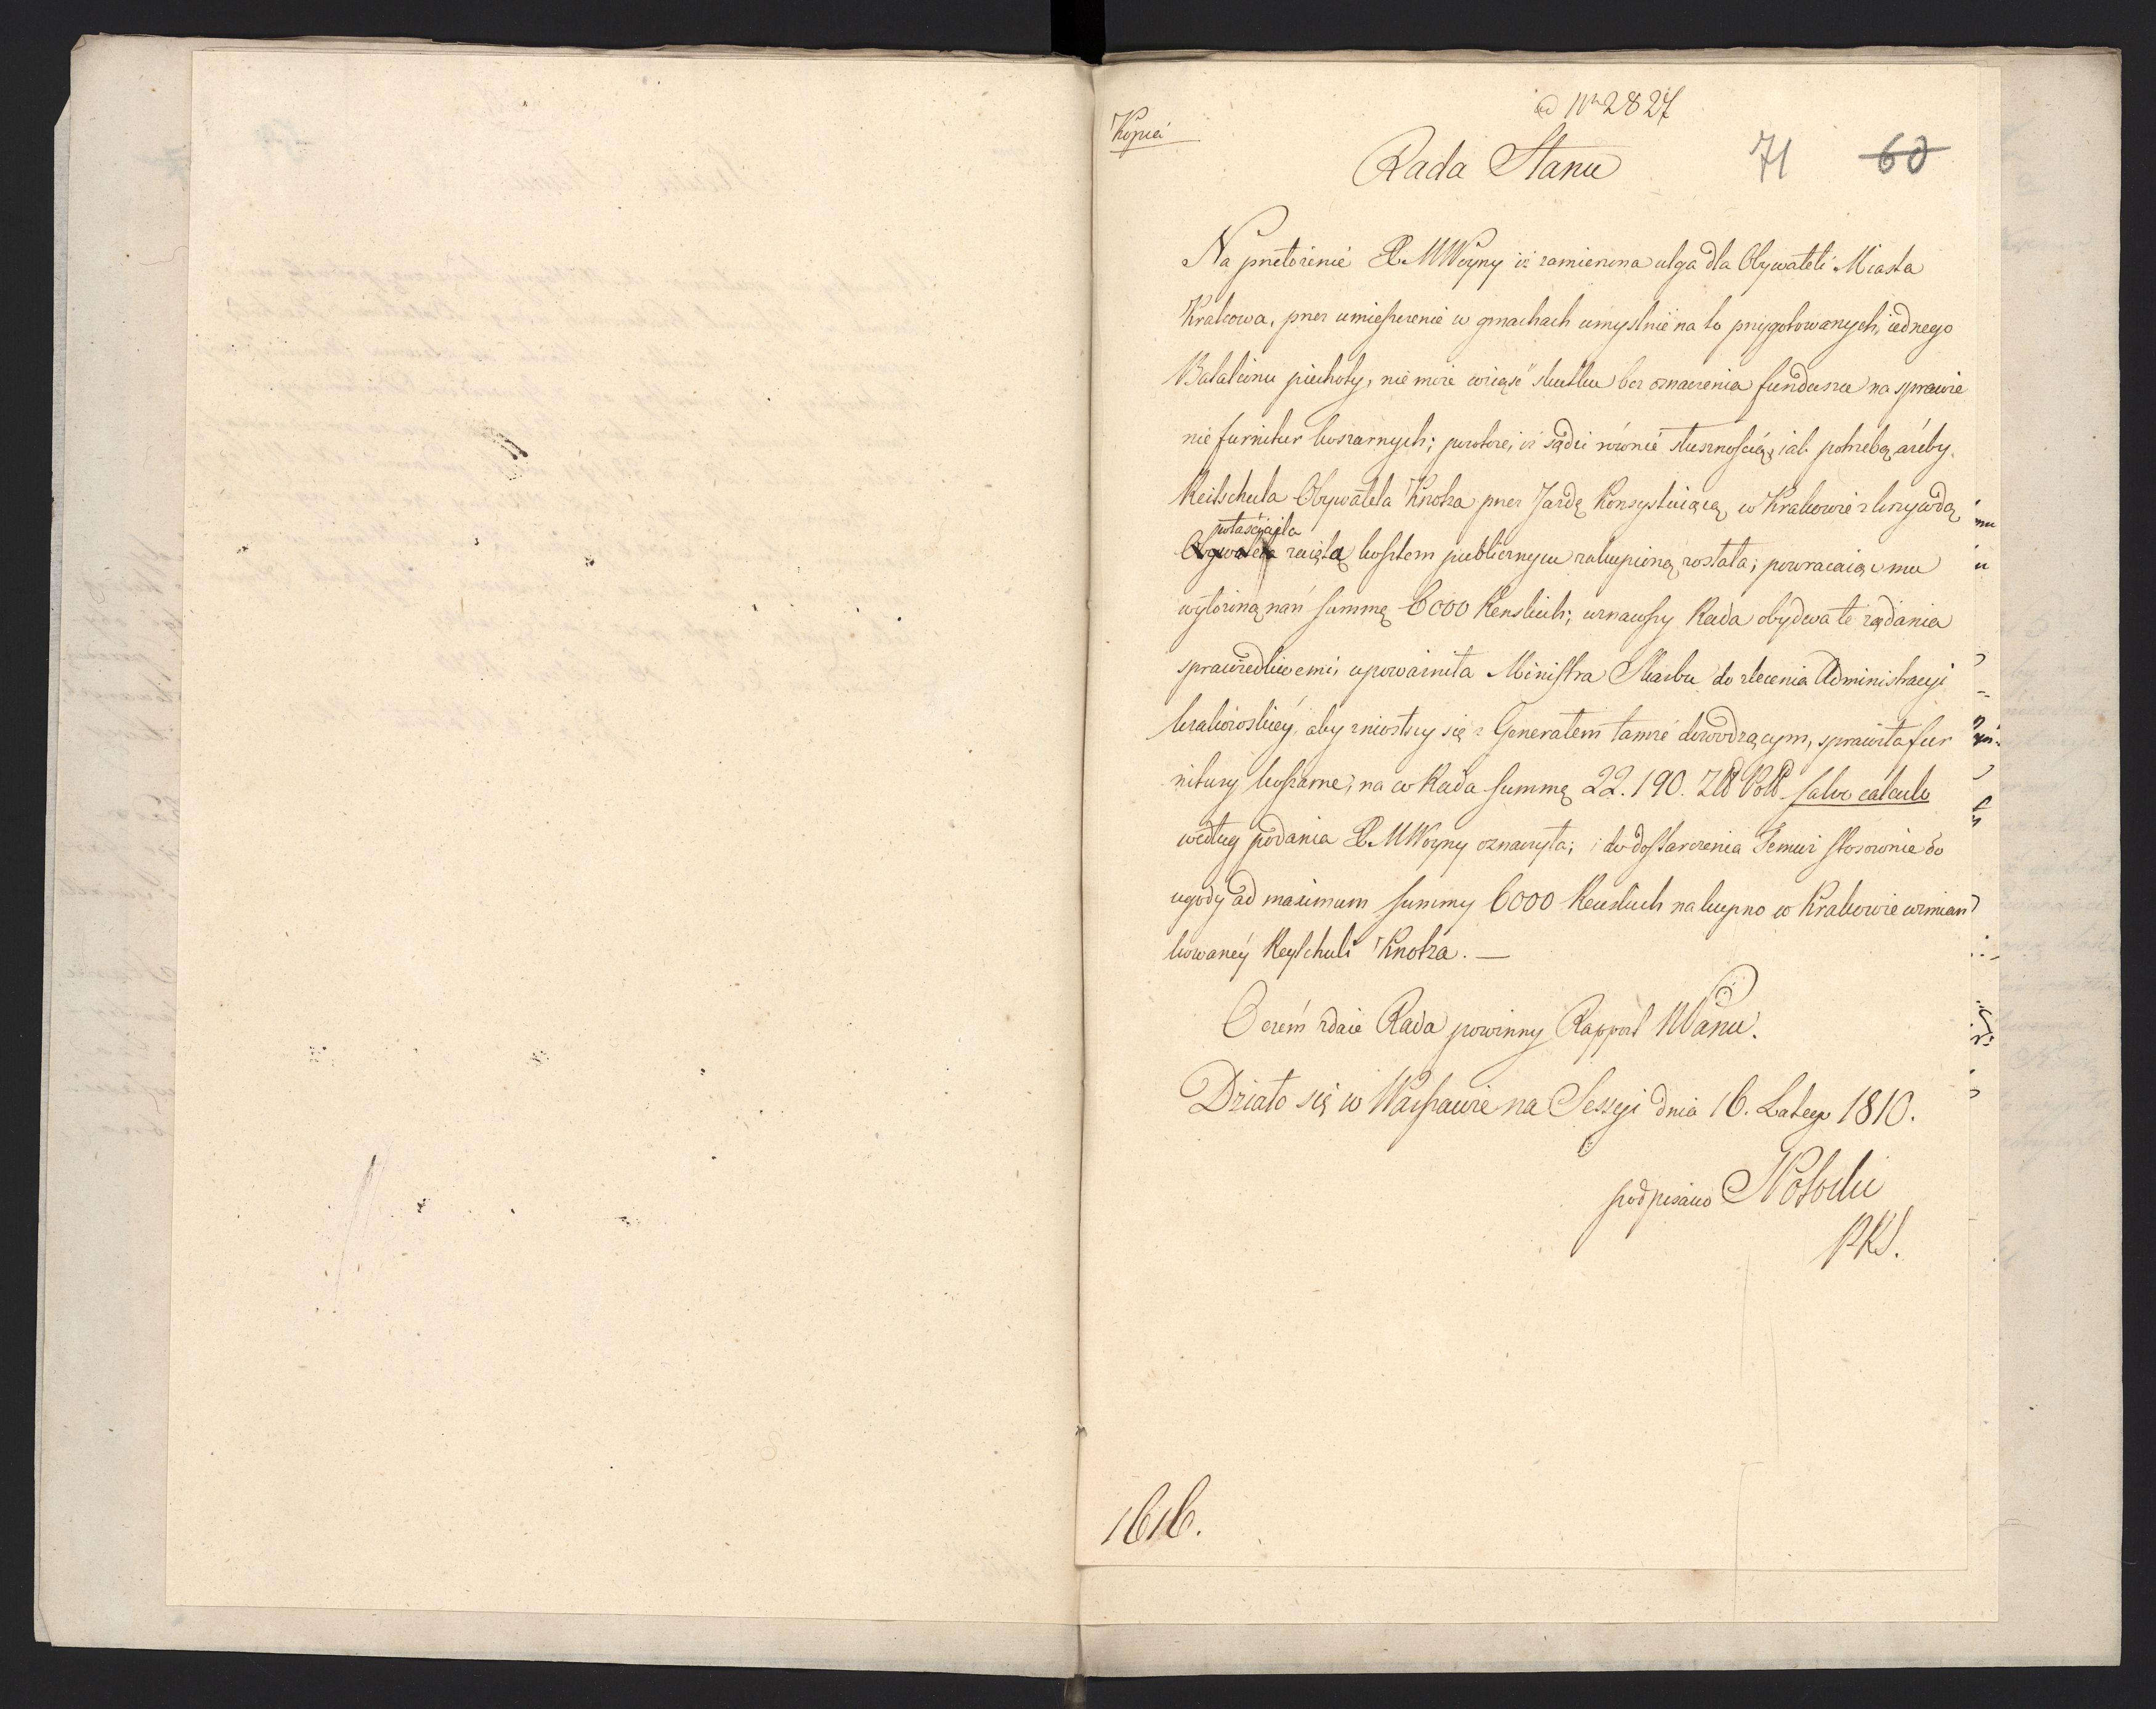 ad Nr 2827
Kopia
Rada Stanu
71 60
Na przełożenie JP. M Woyny iż zamierzona ulga dla Obywateli Miasta
Krakowa, przez umieszczenie w gmachach umyslnie na to przygotowanych, iednego
Batalionu piechoty, nie może wziąść skutku bez oznaczenia funduszu na sprawie
nie furnitur koszarnych; powtore, iż sądzi rownie słusznością, iak potrzebą, ażeby
Reitschula Obywatela Knotza przez Jazdę Konsystuiącą w Krakowie z krzywdą
właściciela
Obywatela zaięta kosztem publicznym zakupioną została; powracaiąc mu
wyłożoną nań summę 6000 Reńskich; uznawszy Rada obydwa te żądania
sprawiedliwemi, upoważniła Ministra Skarbu do zlecenia Administracyi
krakowskiey, aby zniosłszy się z Generałem tamże dowodzącym, sprawiła fur
nitury koszarne, na co Rada summę 22.190. Złł Poll. salvo calculo
według podania JP. M Woyny oznaczyła; i do dostarczenia Temuż stosownie do
ugody ad maximum summy 6000 Reńskich na kupno w Krakowie wzmian
kowaney Reytschuli Knotza. —
O czem zdaie Rada powinny Rapport WPanu.
Działo się w Warszawie na Sessyi dnia 16. Lutego 1810.
podpisano Potocki
PRS.
1616.